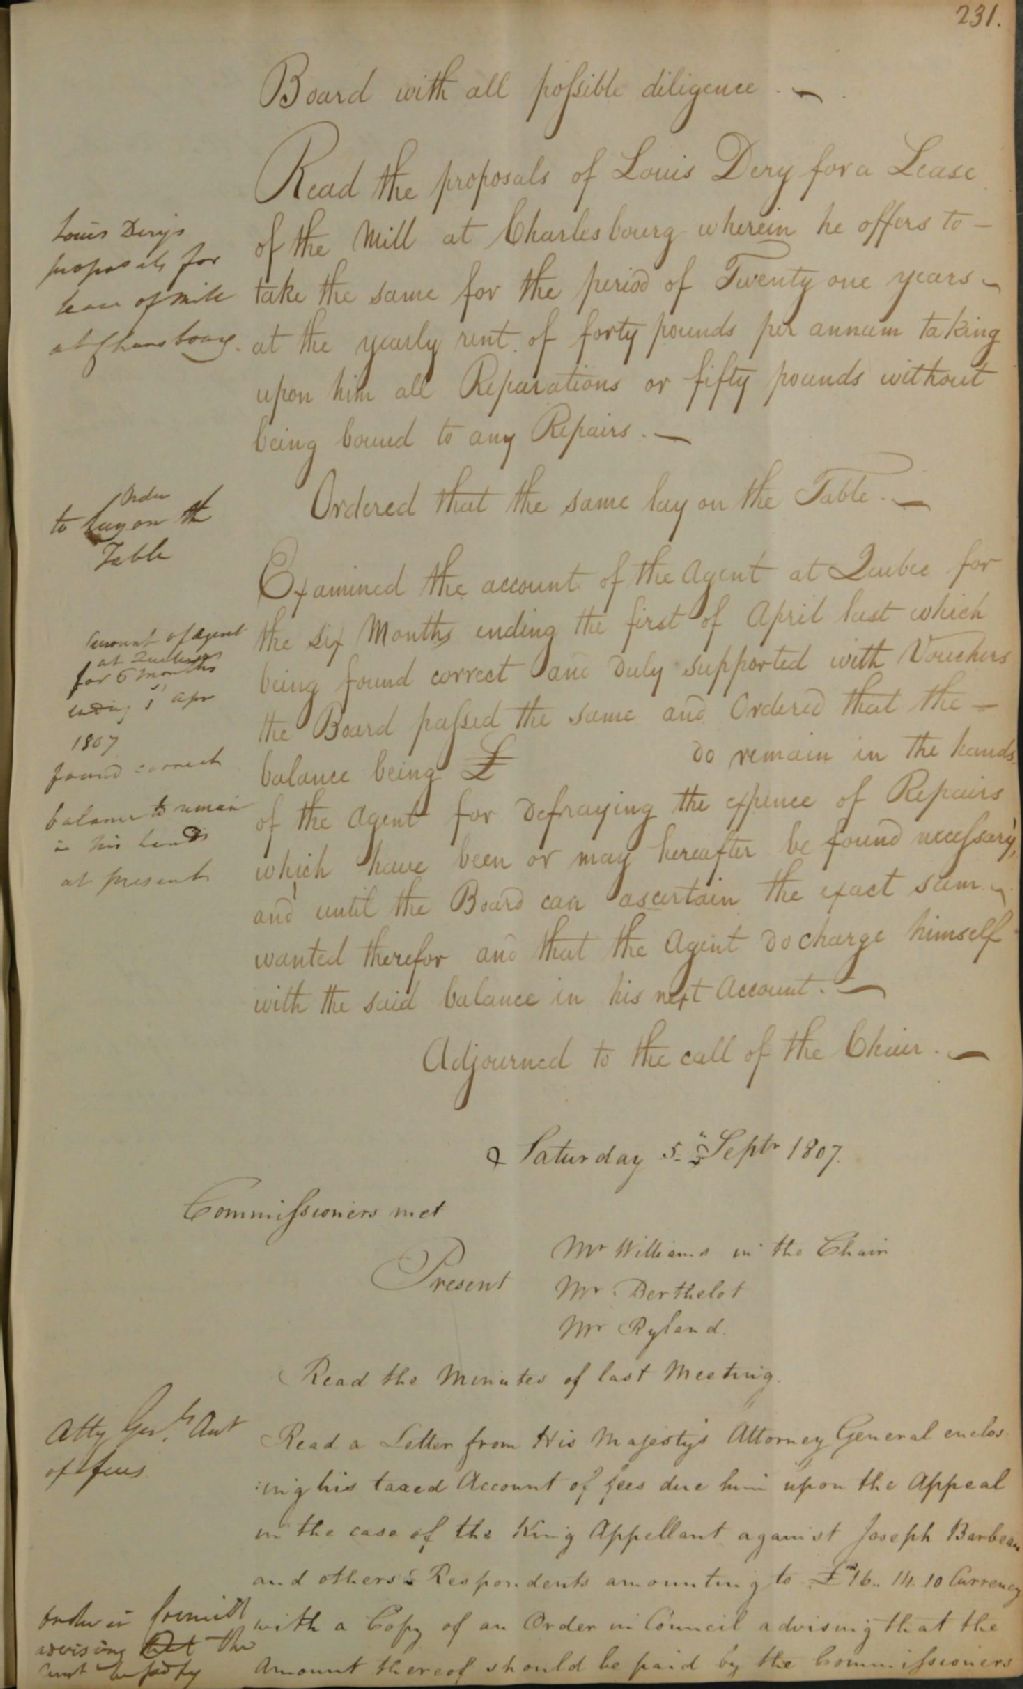 231.
Board with all possible diligence. —
Read the proposals of Louis Dery for a Lease
of the Mill at Charlesbourg wherein he offers to —
take the same for the period of Twenty one years —
at the yearly rent of forty pounds per annum taking
upon him all Reparations or fifty pounds without
being bound to any Repairs. —
Louis Dery's
proposals for
lease of mill
at
Ordered that the same lay on the Table. —
Order
to lay on the
Table
Examined the account of the Agent at Quebec for
the six Months ending the first of April last which
being found correct and duly supported with Vouchers
the Board passed the same and Ordered that the —
balance being £ do remain in the hands
of the Agent for defraying the expence of Repairs
which have been or may hereafter be found necessary,
and until the Board can ascertain the exact sum —
wanted therefor and that the Agent do charge himself
with the said balance in his next Account. —
Account of Agent
at Quebec
for 6 Months
ending 1st Apr
1807
found correct
balance to remain
in his hands
at present
Adjourned to the call of the Chair. —
Saturday 5th Septr 1807.
Commissioners met
Present
Mr Williams in the Chair
Mr Berthelot
Mr Ryland.
Read the Minutes of last Meeting.
Atty Genl's Act
of fees
Read a Letter from His Majesty's Attorney General enclos
:ing his taxed Account of fees due him upon the Appeal
in the case of the King Appellant against Joseph Barbeau
and others Respondents amounting to £16.. 14. 10 Currency
with a Copy of an Order in Council advising that the
Amount thereof should be paid by the Commissioners
Order in Council
advising the
amt be paid by